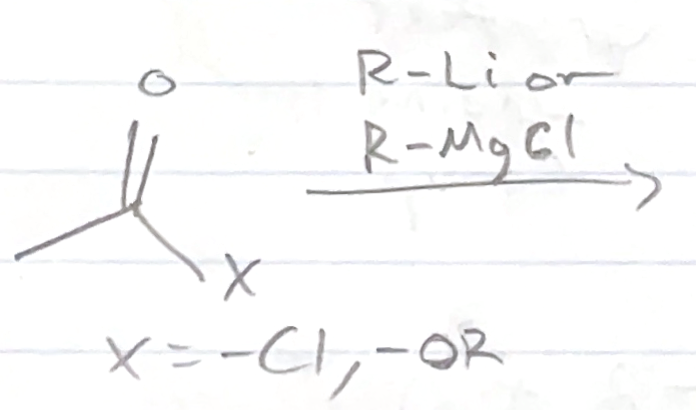 O
R-Li or
R-MgCl
X
X = -Cl, -OR